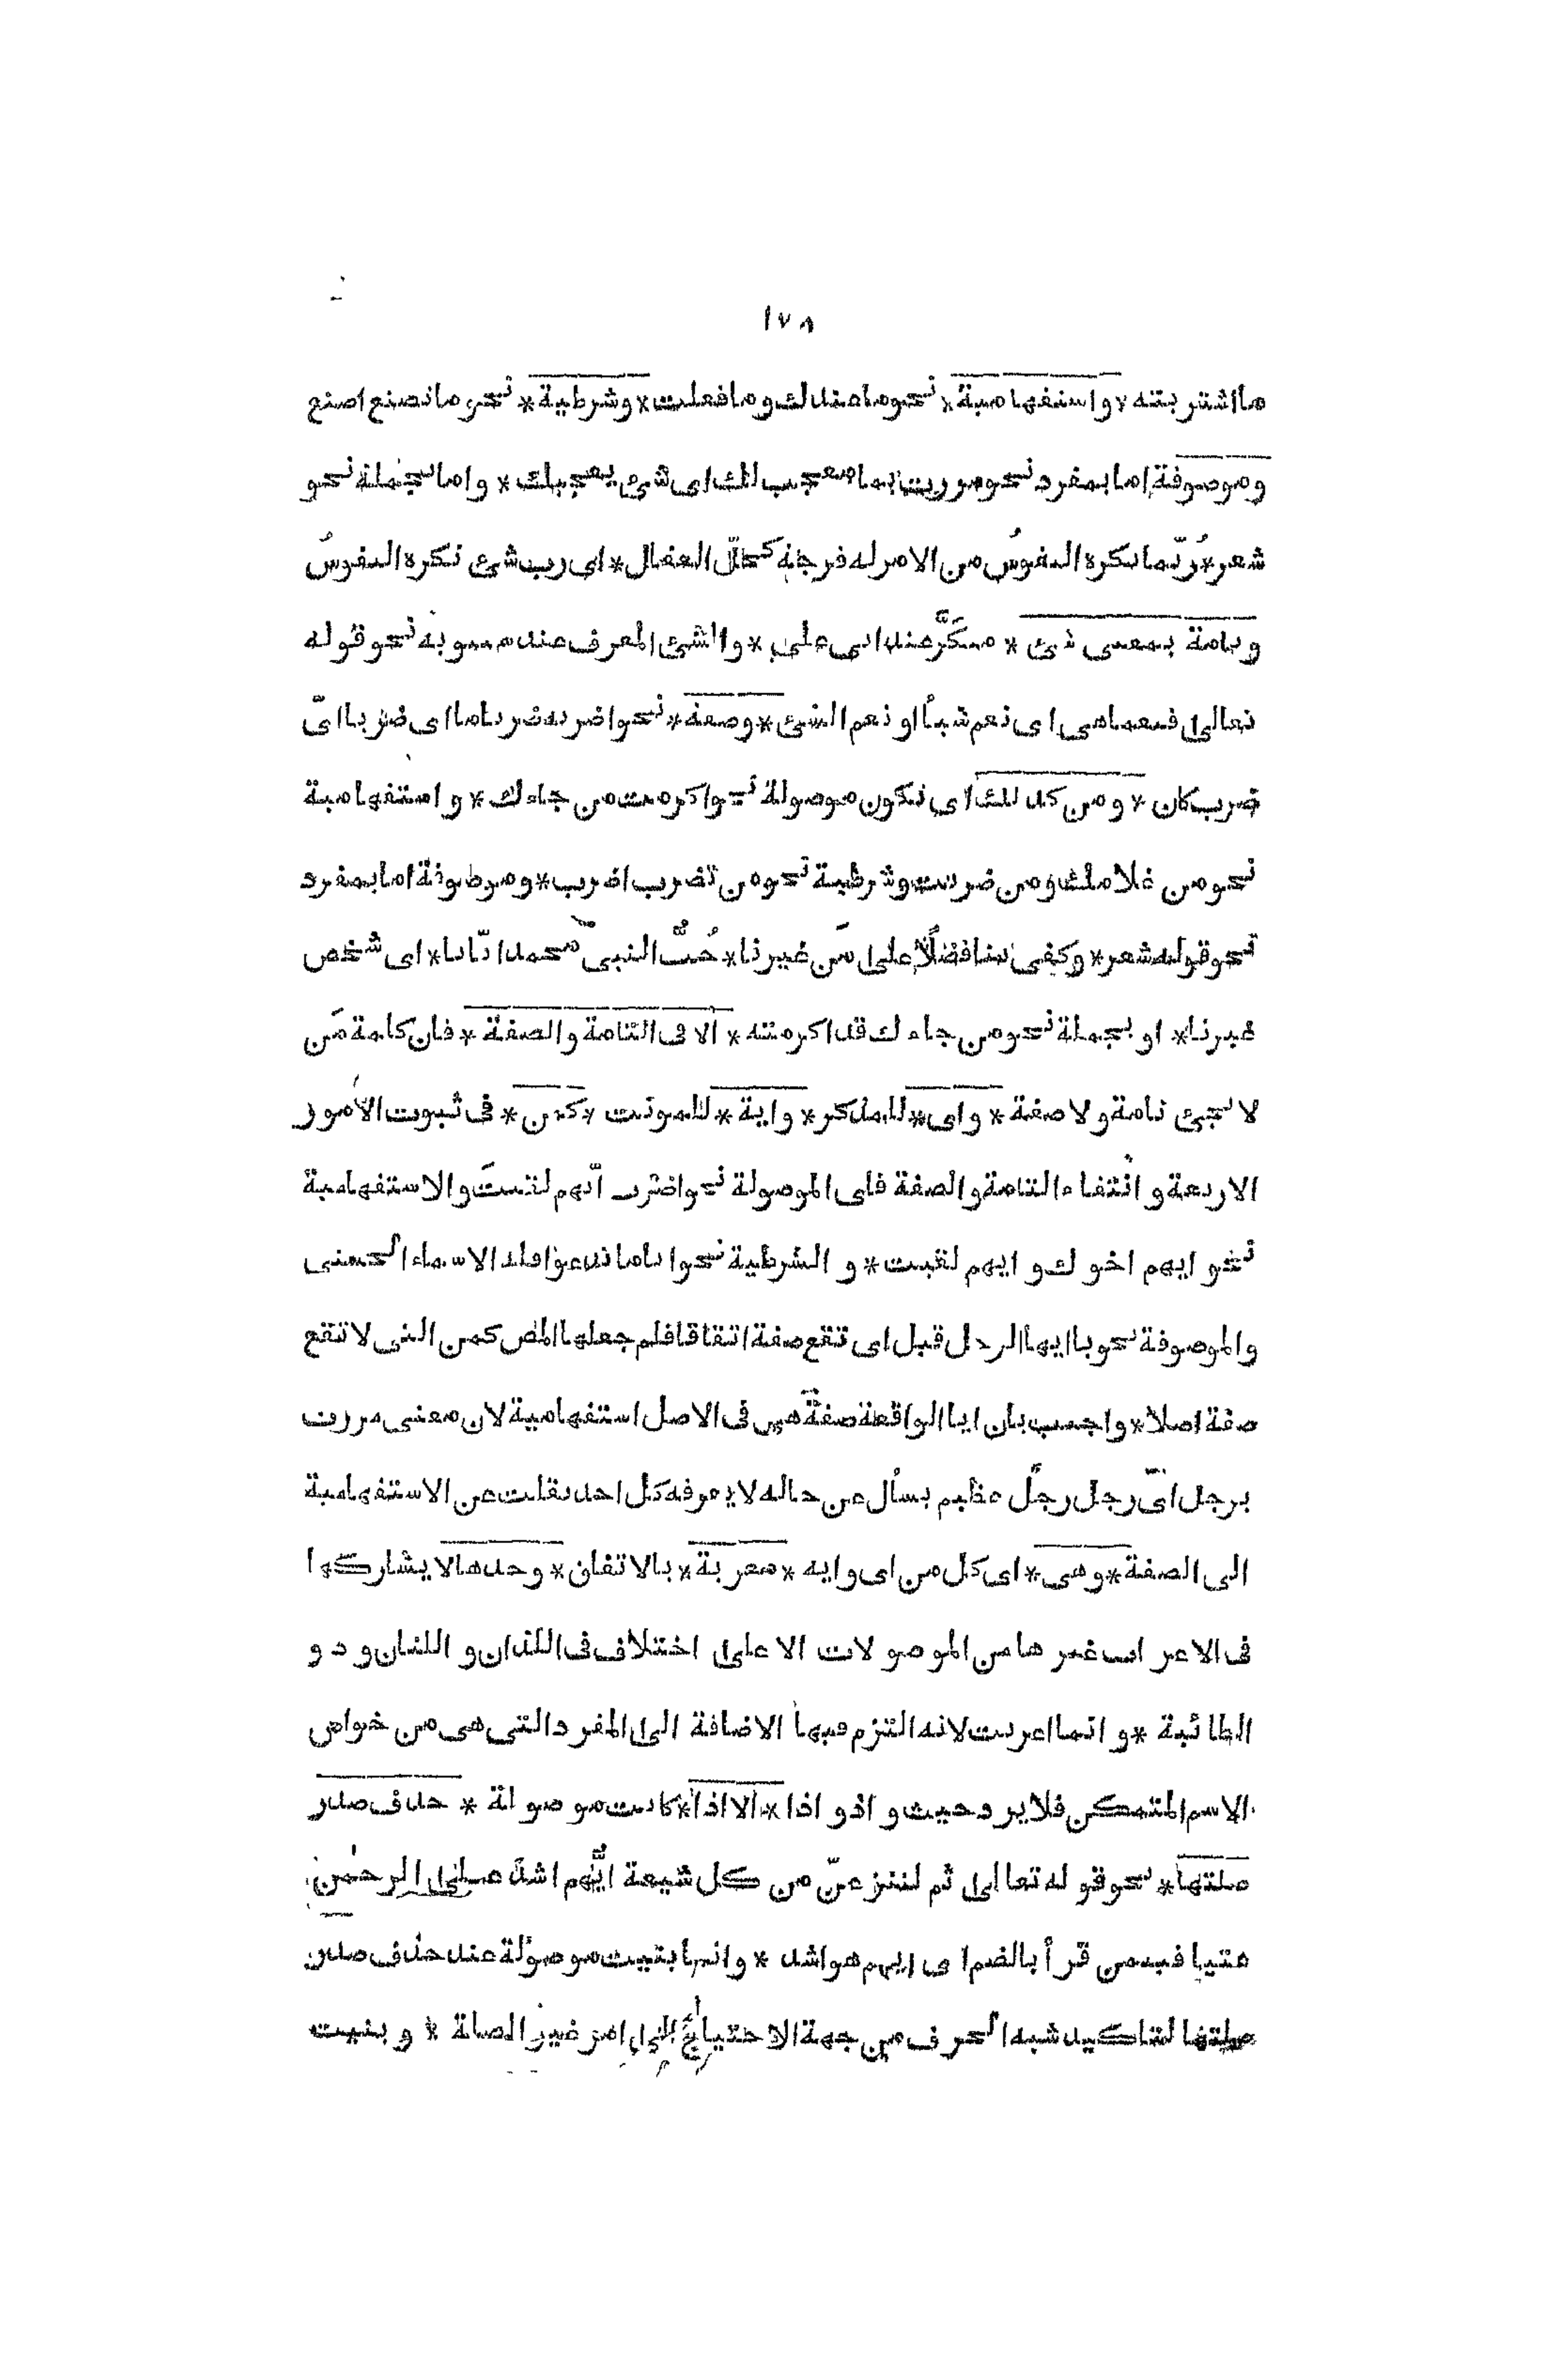 ١٧٨
ما اشتريته * واستفهامية * نحو ما عندك وما فعلت * وشرطية * نحو ما تصنع اصنع
وموصوفة اما بمفرد نحو مررت بما معجب لك اى شئ يعجبك * واما بجملة نحو
شعر * رُبّما تكره النفوسُ من الامر له فرجة كحلّ العقال * اى رب شئ تكره النفوسُ
وتامة بمعنى شئ * منكَّرٍ عند ابى على * والشئ المعرف عند سيبويه نحو قوله
تعالى فنعما هى اى نعم شيأً او نعم الشئ * وصفة * نحو اضربه ضربا ما اى ضربا اىّ
ضرب كان * ومن كذلك اى تكون موصولة نحو اكرمت من جاءك * واستفهامية
نحو من غلامك ومن ضربت وشرطية نحو من تضرب اضرب * وموصوفة اما بمفرد
نحو قوله شعر * وكفى بنا فضلًا على مَن غيرنا * حُبُّ النبى محمد ايّانا * اى شخص
غيرنا * او بجملة نحو من جاءك قد اكرمته * الا فى التامة والصفة * فان كلمة مَن
لا تجئ تامة ولا صفة * واى * للمذكر * واية * للمونث * كمن * فى ثبوت الامور
الاربعة وانتفاء التامة والصفة فاى الموصولة نحو اضرب ايّهم لقيتَ والاستفهامية
نحو ايهم اخوك وايهم لقيت * والشرطية نحو اياما تدعوا فله الاسماء الحسنى
والموصوفة نحو يا ايها الرجل قبل اى تقع صفة اتفاقا فلم جعلها المص كمن التى لا تقع
صفة اصلا * واجيب بان ايا الواقعة صفةً هى فى الاصل استفهامية لان معنى مررت
برجل اىّ رجل رجلٍ عظيم يسأل عن حاله لا يعرفه كل احد نقلت عن الاستفهامية
الى الصفة * وهى * اى كل من اى وايه * معربة * بالاتفاق * وحدها لا يشاركها
فى الاعراب غيرها من الموصولات الا على اختلاف فى اللذان و اللتان و ذو
الطائية * و انما اعربت لانه التزم فيها الاضافة الى المفرد التى هى من خواص
الاسم المتمكن فلا يرد حيث و اذ و اذا * الا اذا * كانت موصولة * حذف صدر
صلتها * نحو قوله تعالى ثم لننزعنّ من كل شيعة ايُّهم اشدّ على الرحمن
عتيا فيمن قرأ بالضم اى ايهم هو اشد * وانما بنيت موصولة عند حذف صدر
صلتها لتاكيد شبه الحرف من جهة الاحتياج الى امر غير الصلة * وبنيت